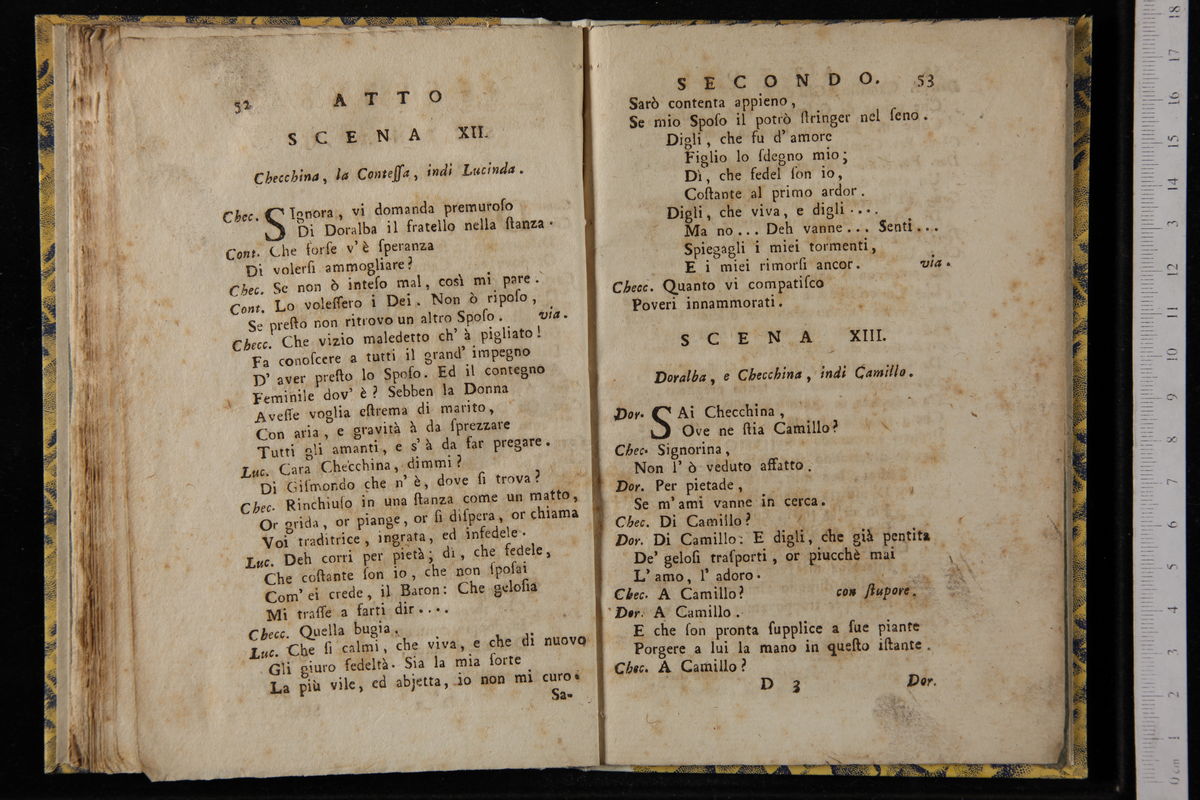 52 ATTO
SCENA XII.
Checchina, la Conteſſa, indi Lucinda.
Chec. SIgnora, vi domanda premuroſo
Di Doralba il fratello nella ſtanza.
Cont. Che forſe v'è ſperanza
Di volerſi ammogliare?
Chec. Se non ò inteſo mal, così mi pare.
Cont. Lo voleſſero i Dei. Non ò ripoſo,
Se preſto non ritrovo un altro Spoſo. via.
Checc. Che vizio maledetto ch' à pigliato!
Fa conoſcere a tutti il grand' impegno
D' aver preſto lo Spoſo. Ed il contegno
Feminile dov' è? Sebben la Donna
Aveſſe voglia eſtrema di marito,
Con aria, e gravità à da ſprezzare
Tutti gli amanti, e s' à da far pregare.
Luc. Cara Checchina, dimmi?
Di Giſmondo che n' è, dove ſi trova?
Chec. Rinchiuſo in una ſtanza come un matto,
Or grida, or piange, or ſi diſpera, or chiama
Voi traditrice, ingrata, ed infedele.
Luc. Deh corri per pietà; di, che fedele,
Che coſtante ſon io, che non ſpoſai
Com' ei crede, il Baron: Che geloſia
Mi traſſe a farti dir....
Checc. Quella bugia.
Luc. Che ſi calmi, che viva, e che di nuovo
Gli giuro fedeltà. Sia la mia ſorte
La più vile, ed abjetta, io non mi curo.
Sa-
SECONDO. 53
Sarò contenta appieno,
Se mio Spoſo il potrò ſtringer nel ſeno.
Digli, che fu d' amore
Figlio lo ſdegno mio;
Dì, che fedel ſon io,
Coſtante al primo ardor.
Digli, che viva, e digli....
Ma no... Deh vanne... Senti...
Spiegagli i miei tormenti,
E i miei rimorſi ancor. via.
Checc. Quanto vi compatiſco
Poveri innammorati.
SCENA XIII.
Doralba, e Checchina, indi Camillo.
Dor. SAi Checchina,
Ove ne ſtia Camillo?
Chec. Signorina,
Non l' ò veduto affatto.
Dor. Per pietade,
Se m' ami vanne in cerca.
Chec. Di Camillo?
Dor. Di Camillo: E digli, che già pentita
De' geloſi traſporti, or piucchè mai
L' amo, l' adoro.
Chec. A Camillo? con ſtupore.
Dor. A Camillo.
E che ſon pronta ſupplice a ſue piante
Porgere a lui la mano in queſto iſtante.
Chec. A Camillo?
D 3 Dor.
0 cm 1 2 3 4 5 6 7 8 9 10 11 12 13 14 15 16 17 18